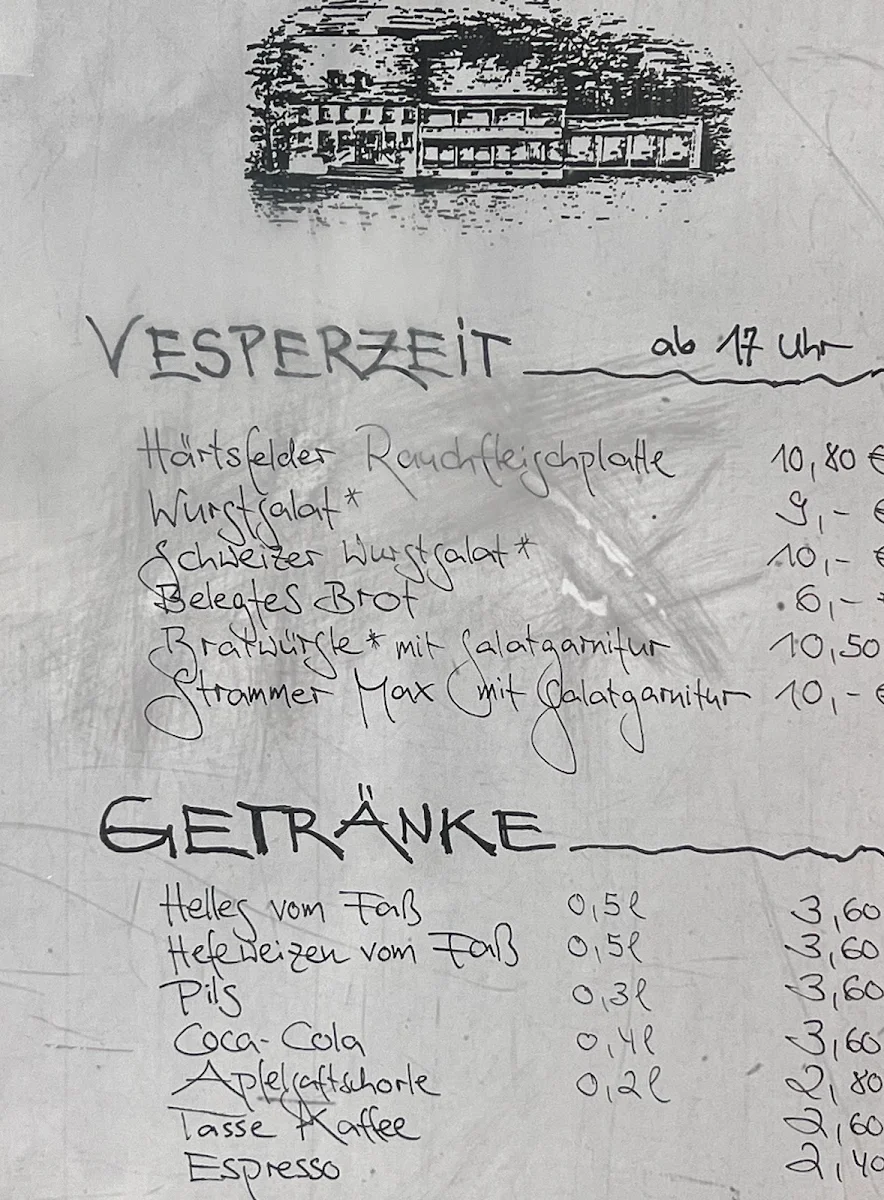 VESPERZEIT ab 17 Uhr
Härtsfelder Rauchfleischplatte 10,80 €
Wurstsalat* 9,- €
Schweizer Wurstsalat* 10,- €
Belegtes Brot 6,-
Bratwürste* mit Salatgarnitur 10,50
Strammer Max mit Salatgarnitur 10,- €
GETRÄNKE
Helles vom Faß 0,5l 3,60
Hefeweizen vom Faß 0,5l 3,60
Pils 0,3l 3,60
Coca-Cola 0,4l 3,60
Apfelsaftschorle 0,2l 2,80
Tasse Kaffee 2,60
Espresso 2,40